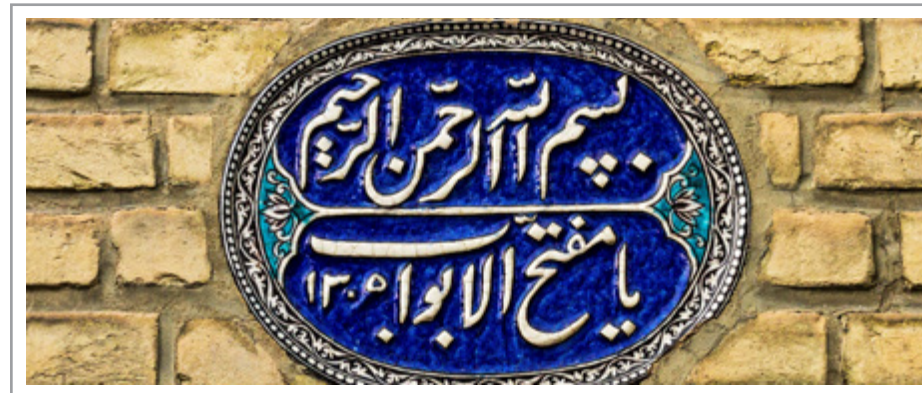 بسم الله الرحمن الرحیم
یا مفتح الابواب ۱۳۰۵